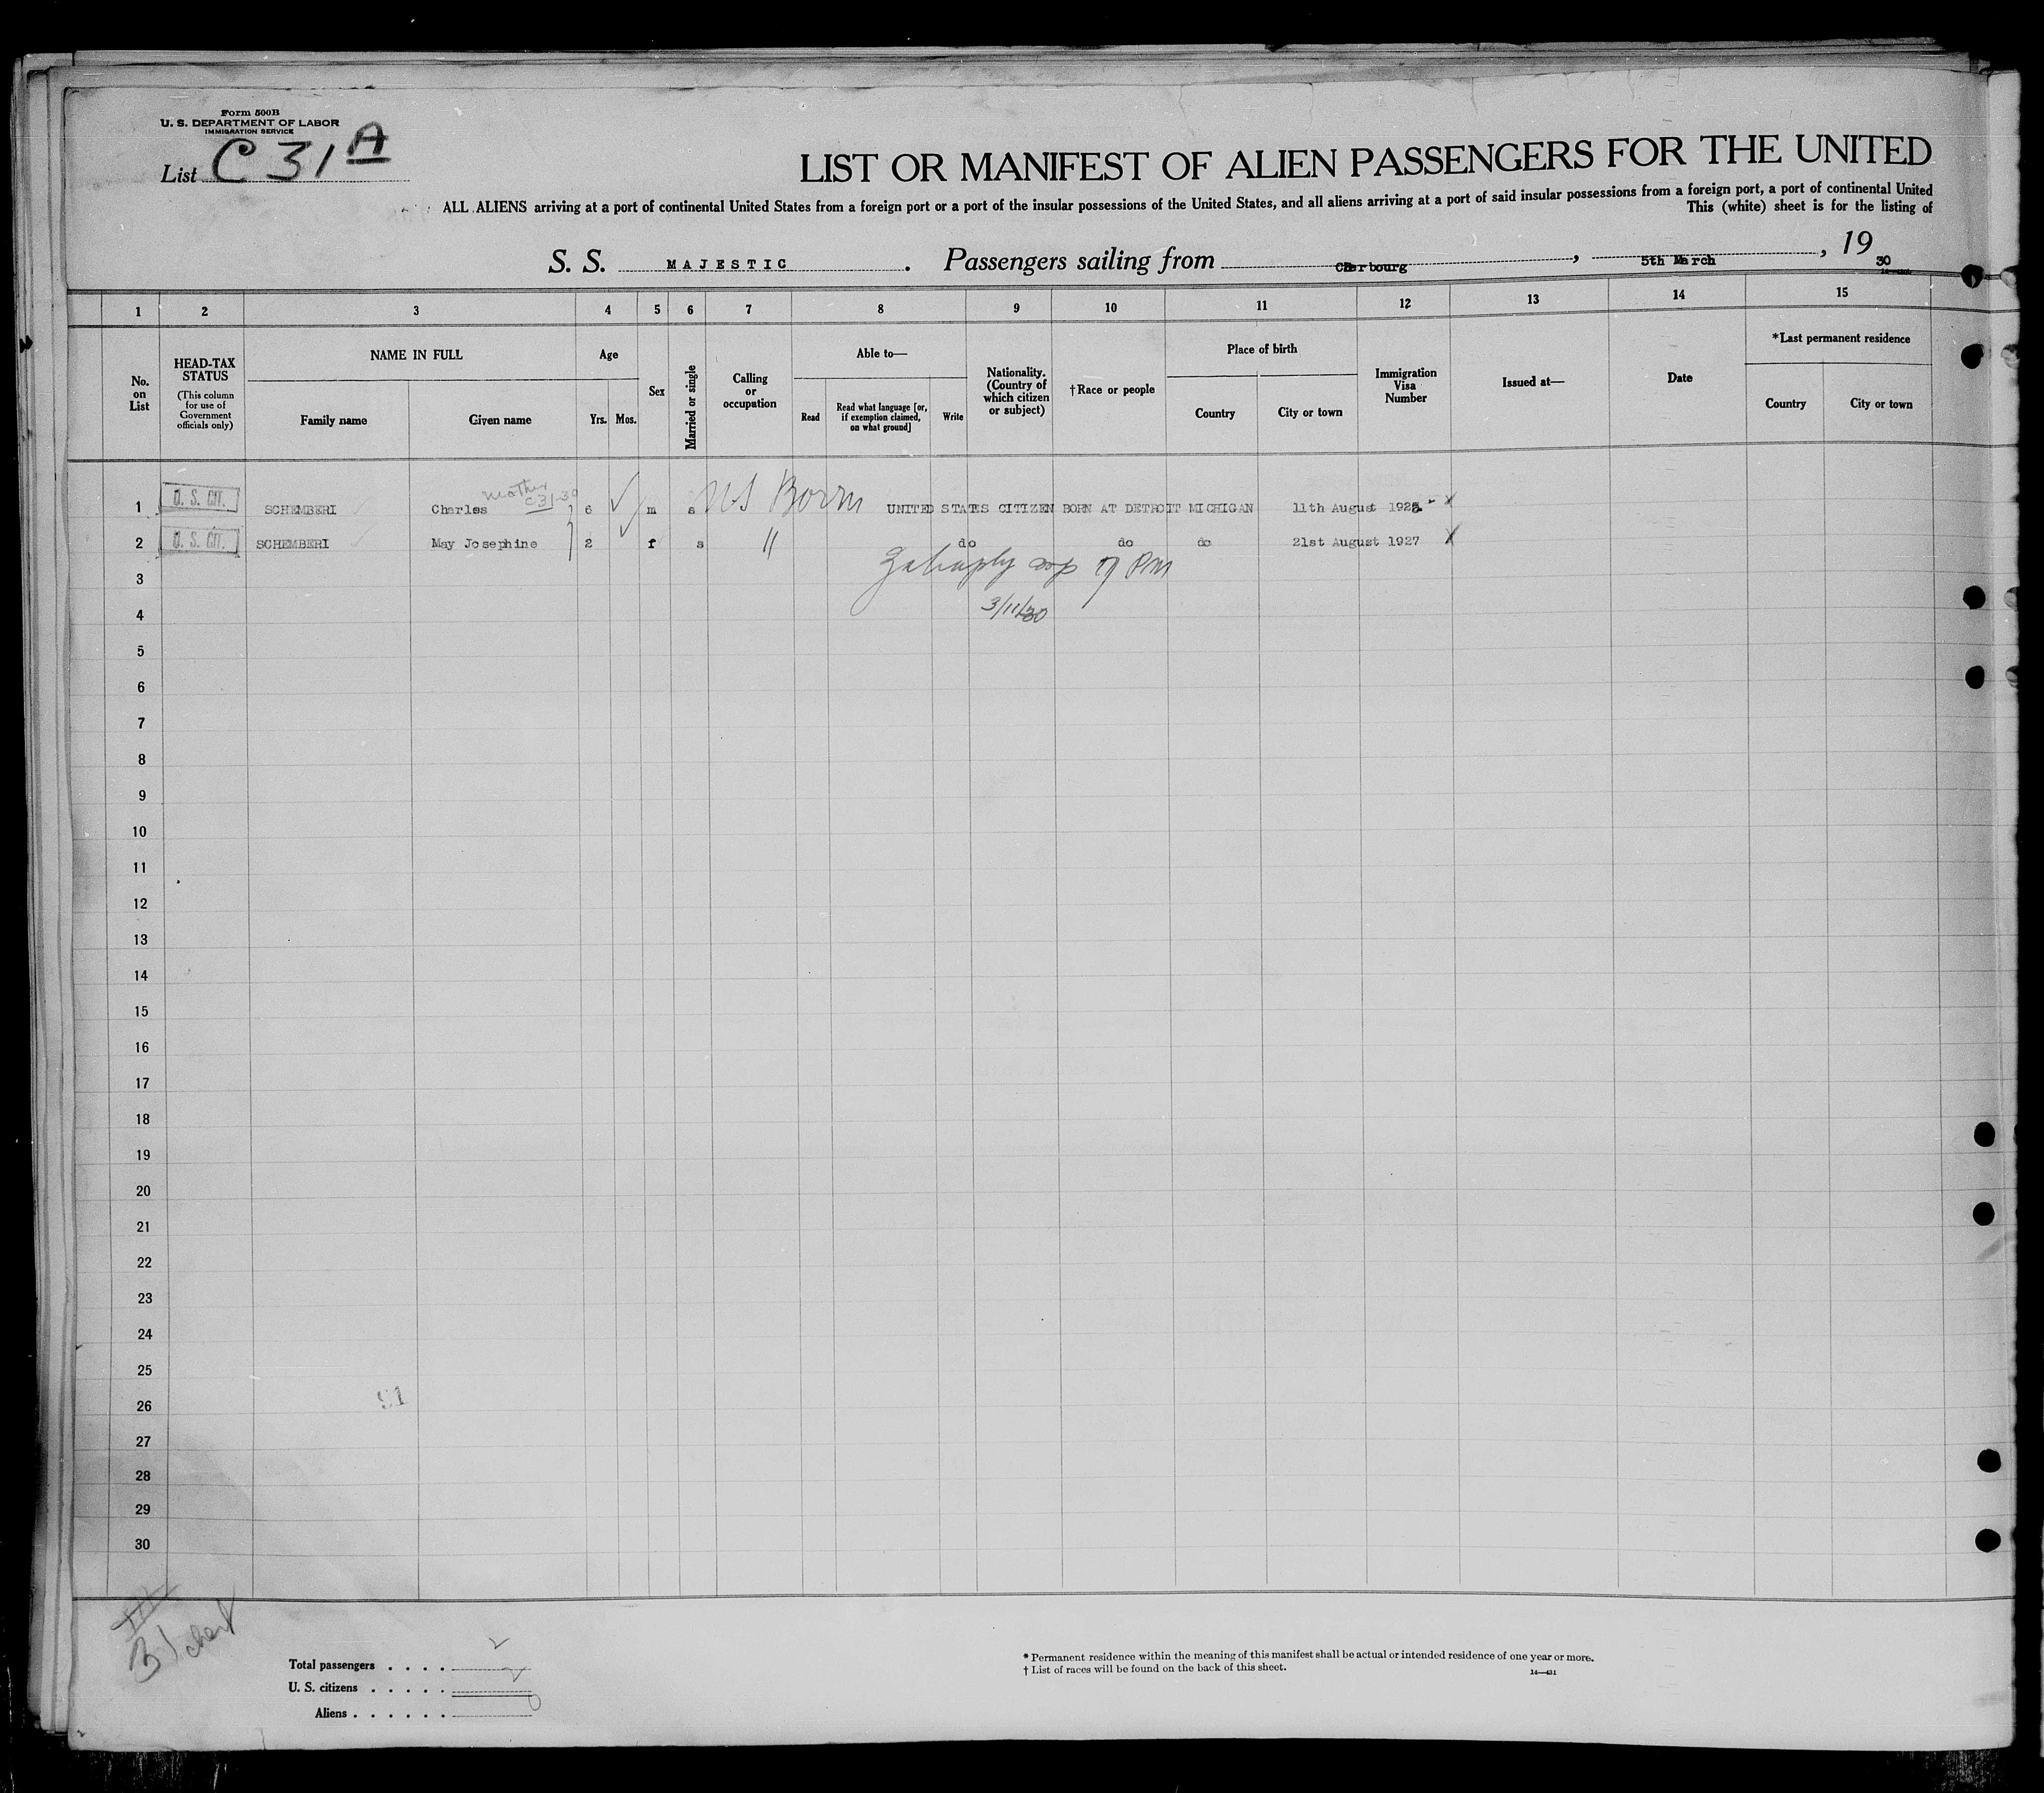 Form 500B
U. S. DEPARTMENT OF LABOR
IMMIGRATION SERVICE
List C 31 A
LIST OR MANIFEST OF ALIEN PASSENGERS FOR THE UNITED
ALL ALIENS arriving at a port of continental United States from a foreign port or a port of the insular possessions of the United States, and all aliens arriving at a port of said insular possessions from a foreign port, a port of continental United
This (white) sheet is for the listing of
S. S. MAJESTIC. Passengers sailing from Cherbourg, 5th March, 1930
1 2 3 4 5 6 7 8 9 10 11 12 13 14 15
No. on List
HEAD-TAX STATUS
(This column for use of Government officials only)
NAME IN FULL
Family name
Given name
Age
Yrs. Mos.
Sex
Married or single
Calling or occupation
Able to—
Read
Read what language [or, if exemption claimed, on what ground]
Write
Nationality. (Country of which citizen or subject)
†Race or people
Place of birth
Country
City or town
Immigration Visa Number
Issued at—
Date
*Last permanent residence
Country
City or town
mother
C31-30
1 U. S. CIT. SCHEMBERI Charles 6 m s US Born UNITED STATES CITIZEN BORN AT DETROIT MICHIGAN 11th August 192 x
2 U. S. CIT. SCHEMBERI May Josephine 2 f s " do do do 21st August 1927 x
3
4 3/11/30
5
6
7
8
9
10
11
12
13
14
15
16
17
18
19
20
21
22
23
24
25
26
27
28
29
30
Total passengers . . . . 2
U. S. citizens . . . . . 2
Aliens . . . . . . 0
* Permanent residence within the meaning of this manifest shall be actual or intended residence of one year or more.
† List of races will be found on the back of this sheet.
14—431